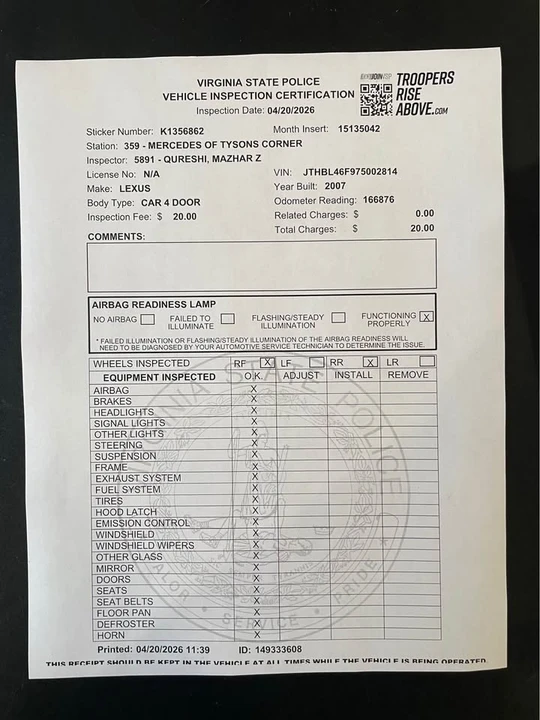 VIRGINIA STATE POLICE
VEHICLE INSPECTION CERTIFICATION
Inspection Date: 04/20/2026
TROOPERS
RISE
ABOVE.COM
Sticker Number: K1356862 Month Insert: 15135042
Station: 359 - MERCEDES OF TYSONS CORNER
Inspector: 5891 - QURESHI, MAZHAR Z
License No: N/A VIN: JTHBL46F975002814
Make: LEXUS Year Built: 2007
Body Type: CAR 4 DOOR Odometer Reading: 166876
Inspection Fee: $ 20.00 Related Charges: $ 0.00
Total Charges: $ 20.00
COMMENTS:
AIRBAG READINESS LAMP
NO AIRBAG FAILED TO ILLUMINATE FLASHING/STEADY ILLUMINATION FUNCTIONING PROPERLY X
* FAILED ILLUMINATION OR FLASHING/STEADY ILLUMINATION OF THE AIRBAG READINESS WILL
NEED TO BE DIAGNOSED BY YOUR AUTOMOTIVE SERVICE TECHNICIAN TO DETERMINE THE ISSUE.
WHEELS INSPECTED RF X LF RR X LR
EQUIPMENT INSPECTED O.K. ADJUST INSTALL REMOVE
AIRBAG X
BRAKES X
HEADLIGHTS X
SIGNAL LIGHTS X
OTHER LIGHTS X
STEERING X
SUSPENSION X
FRAME X
EXHAUST SYSTEM X
FUEL SYSTEM X
TIRES X
HOOD LATCH X
EMISSION CONTROL X
WINDSHIELD X
WINDSHIELD WIPERS X
OTHER GLASS X
MIRROR X
DOORS X
SEATS X
SEAT BELTS X
FLOOR PAN X
DEFROSTER X
HORN X
VIRGINIA STATE POLICE
VALOR • SERVICE • PRIDE
Printed: 04/20/2026 11:39 ID: 149333608
THIS RECEIPT SHOULD BE KEPT IN THE VEHICLE AT ALL TIMES WHILE THE VEHICLE IS BEING OPERATED